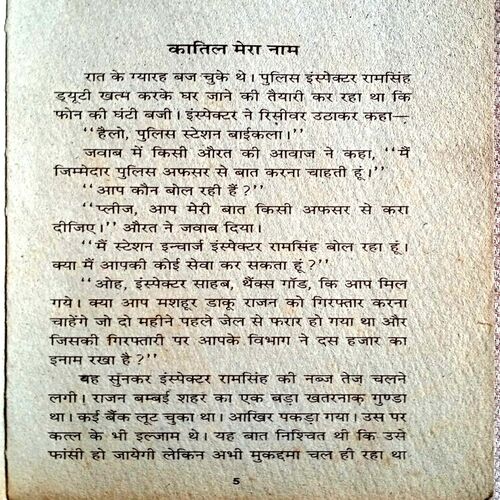 कातिल मेरा नाम
रात के ग्यारह बज चुके थे। पुलिस इंस्पेक्टर रामसिंह
ड्यूटी खत्म करके घर जाने की तैयारी कर रहा था कि
फोन की घंटी बजी। इंस्पेक्टर ने रिसीवर उठाकर कहा—
‘‘हैलो, पुलिस स्टेशन बाईकला।’’
जवाब में किसी औरत की आवाज ने कहा, ‘‘मैं
जिम्मेदार पुलिस अफसर से बात करना चाहती हूं।’’
‘‘आप कौन बोल रही हैं ?’’
‘‘प्लीज, आप मेरी बात किसी अफसर से करा
दीजिए।’’ औरत ने जवाब दिया।
‘‘मैं स्टेशन इन्चार्ज इंस्पेक्टर रामसिंह बोल रहा हूं।
क्या मैं आपकी कोई सेवा कर सकता हूं ?’’
‘‘ओह, इंस्पेक्टर साहब, थैंक्स गॉड, कि आप मिल
गये। क्या आप मशहूर डाकू राजन को गिरफ्तार करना
चाहेंगे जो दो महीने पहले जेल से फरार हो गया था और
जिसकी गिरफ्तारी पर आपके विभाग ने दस हजार का
इनाम रखा है ?’’
यह सुनकर इंस्पेक्टर रामसिंह की नब्ज तेज चलने
लगी। राजन बम्बई शहर का एक बड़ा खतरनाक गुण्डा
था। कई बैंक लूट चुका था। आखिर पकड़ा गया। उस पर
कत्ल के भी इल्जाम थे। यह बात निश्चित थी कि उसे
फांसी हो जायेगी लेकिन अभी मुकद्दमा चल ही रहा था
5